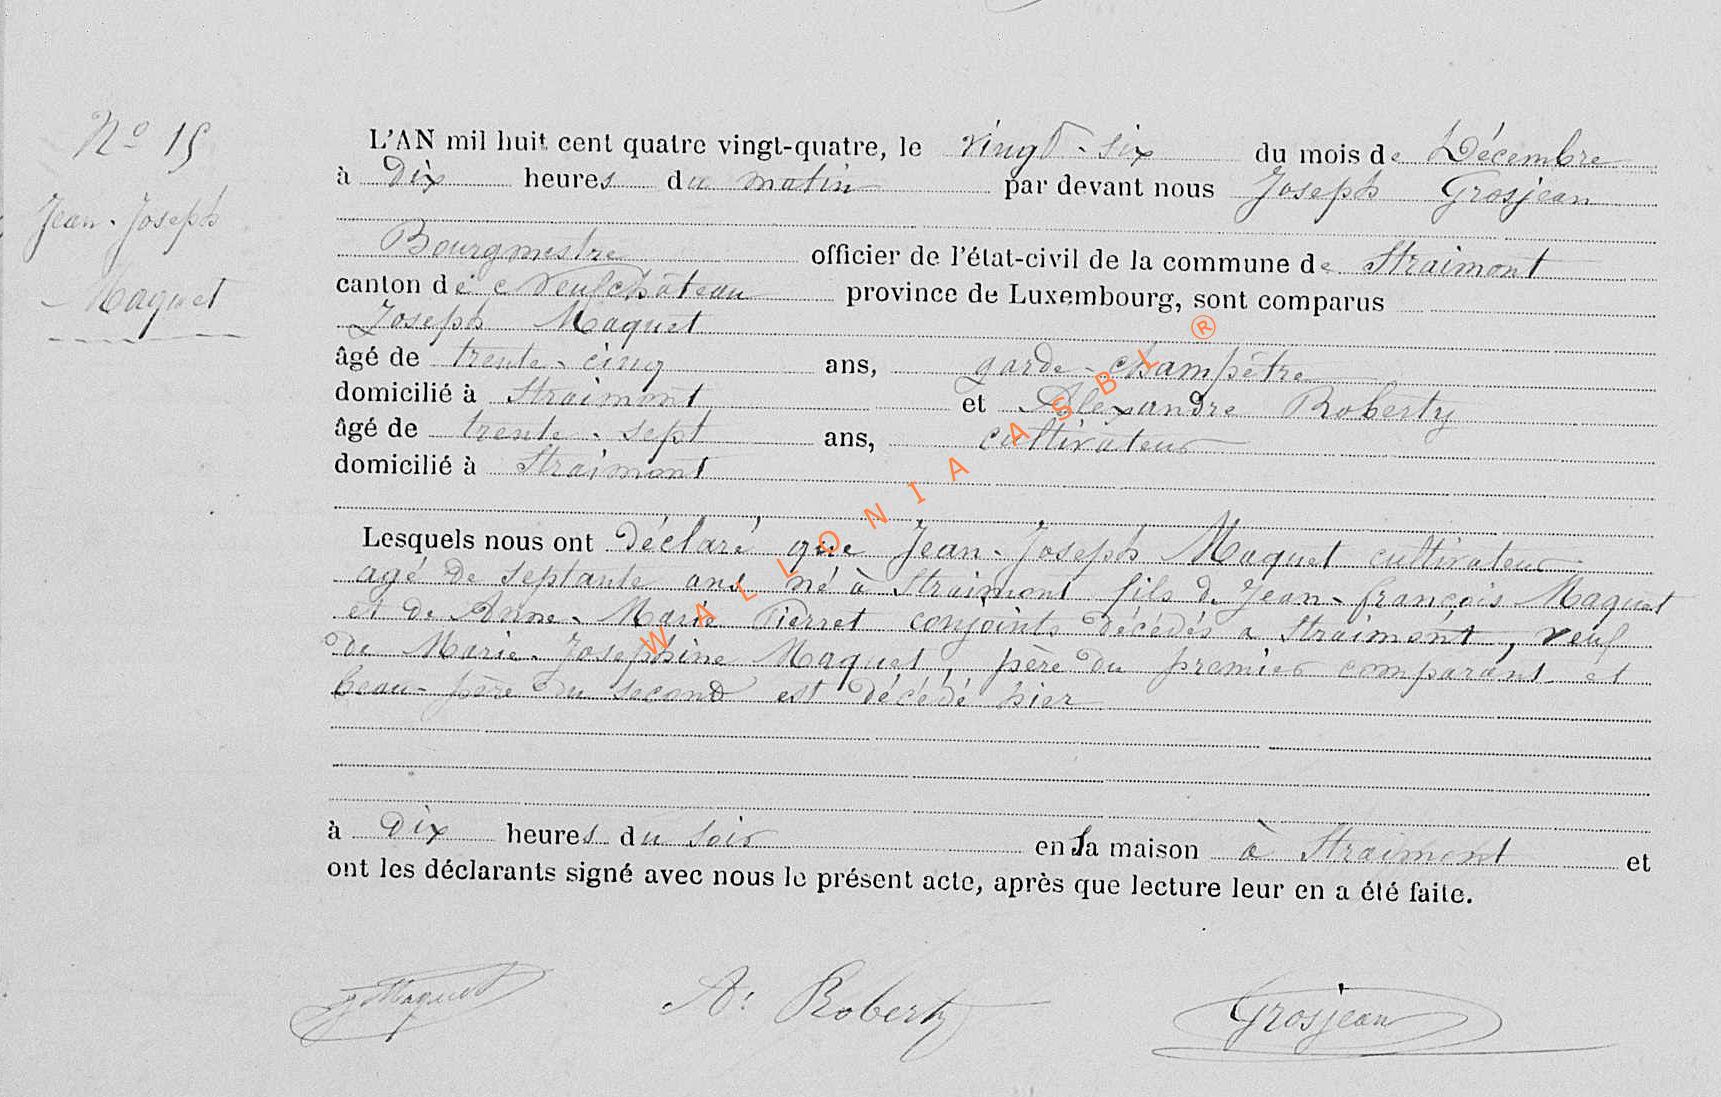 Nº 15
Jean-Joseph
Maquet
L'AN mil huit cent quatre vingt-quatre, le vingt-six du mois de Décembre
à Dix heures du matin par devant nous Joseph Grosjean
Bourgmestre officier de l'état-civil de la commune de Straimont
canton de Neufchâteau province de Luxembourg, sont comparus
Joseph Maquet
âgé de trente-cinq ans, garde-champêtre
domicilié à Straimont et Aléxandre Roberty
âgé de trente-sept ans, cultivateur
domicilié à Straimont
Lesquels nous ont Déclaré que Jean-Joseph Maquet cultivateur
agé de septante ans né à Straimont fils de Jean-françois Maquet
et de Anne-Marie Pierret conjoints décédés a Straimont, veuf
de Marie-Joséphine Maquet, père du premier comparant et
beau-père du second est décédé hier
à Dix heures du soir en sa maison à Straimont et
ont les déclarants signé avec nous le présent acte, après que lecture leur en a été faite.
J Maquet A. Roberty Grosjean
WALLONIA ASBL ®